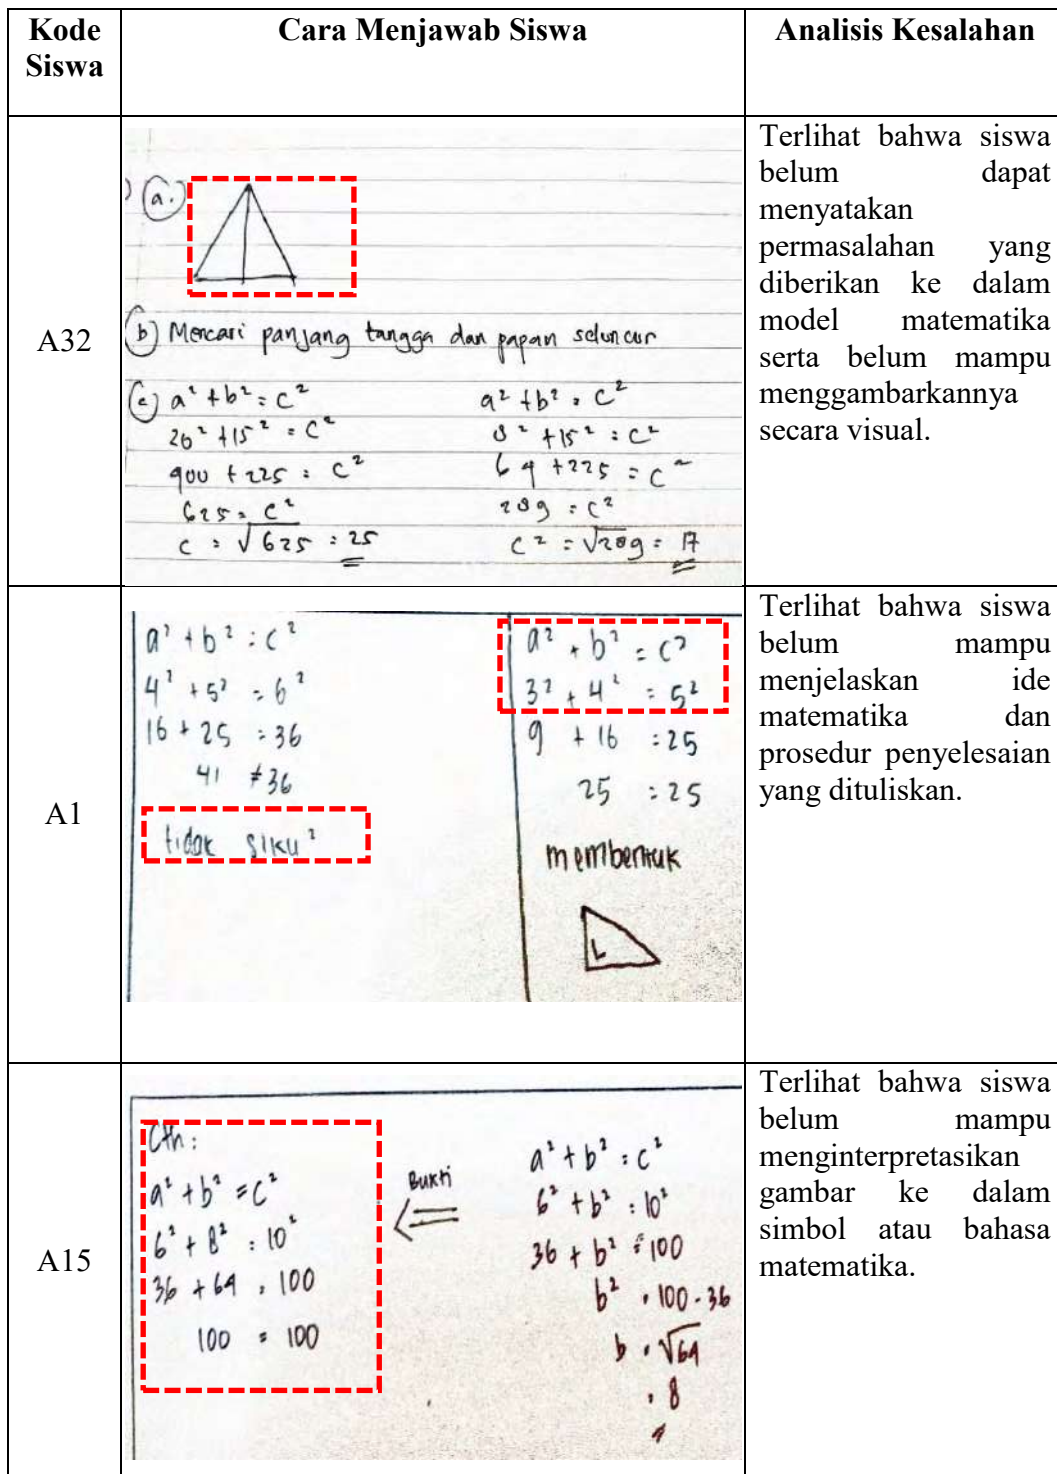 Kode Siswa
Cara Menjawab Siswa
Analisis Kesalahan
A32
a.
b) Mencari panjang tangga dan papan seluncur
c) a² + b² = c²
20² + 15² = c²
400 + 225 = c²
625 = c²
c = √625 = 25
a² + b² = c²
8² + 15² = c²
64 + 225 = c²
289 = c²
c² = √289 = 17
Terlihat bahwa siswa
belum dapat
menyatakan
permasalahan yang
diberikan ke dalam
model matematika
serta belum mampu
menggambarkannya
secara visual.
A1
a² + b² = c²
4² + 5² = 6²
16 + 25 = 36
41 ≠ 36
tidak siku²
a² + b² = c²
3² + 4² = 5²
9 + 16 = 25
25 = 25
membentuk
Terlihat bahwa siswa
belum mampu
menjelaskan ide
matematika dan
prosedur penyelesaian
yang dituliskan.
A15
Cth:
a² + b² = c²
6² + 8² = 10²
36 + 64 = 100
100 = 100
Bukti
a² + b² = c²
6² + b² = 10²
36 + b² = 100
b² = 100 - 36
b = √64
= 8
Terlihat bahwa siswa
belum mampu
menginterpretasikan
gambar ke dalam
simbol atau bahasa
matematika.